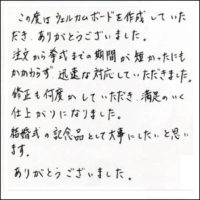 この度はウェルカムボードを作成していた
だき、ありがとうございました。
注文から挙式までの期間が短かったにも
かかわらず、迅速な対応していただきました。
修正も何度かしていただき、満足のいく
仕上がりになりました。
結婚式の記念品として大事にしたいと思い
ます。
ありがとうございました。